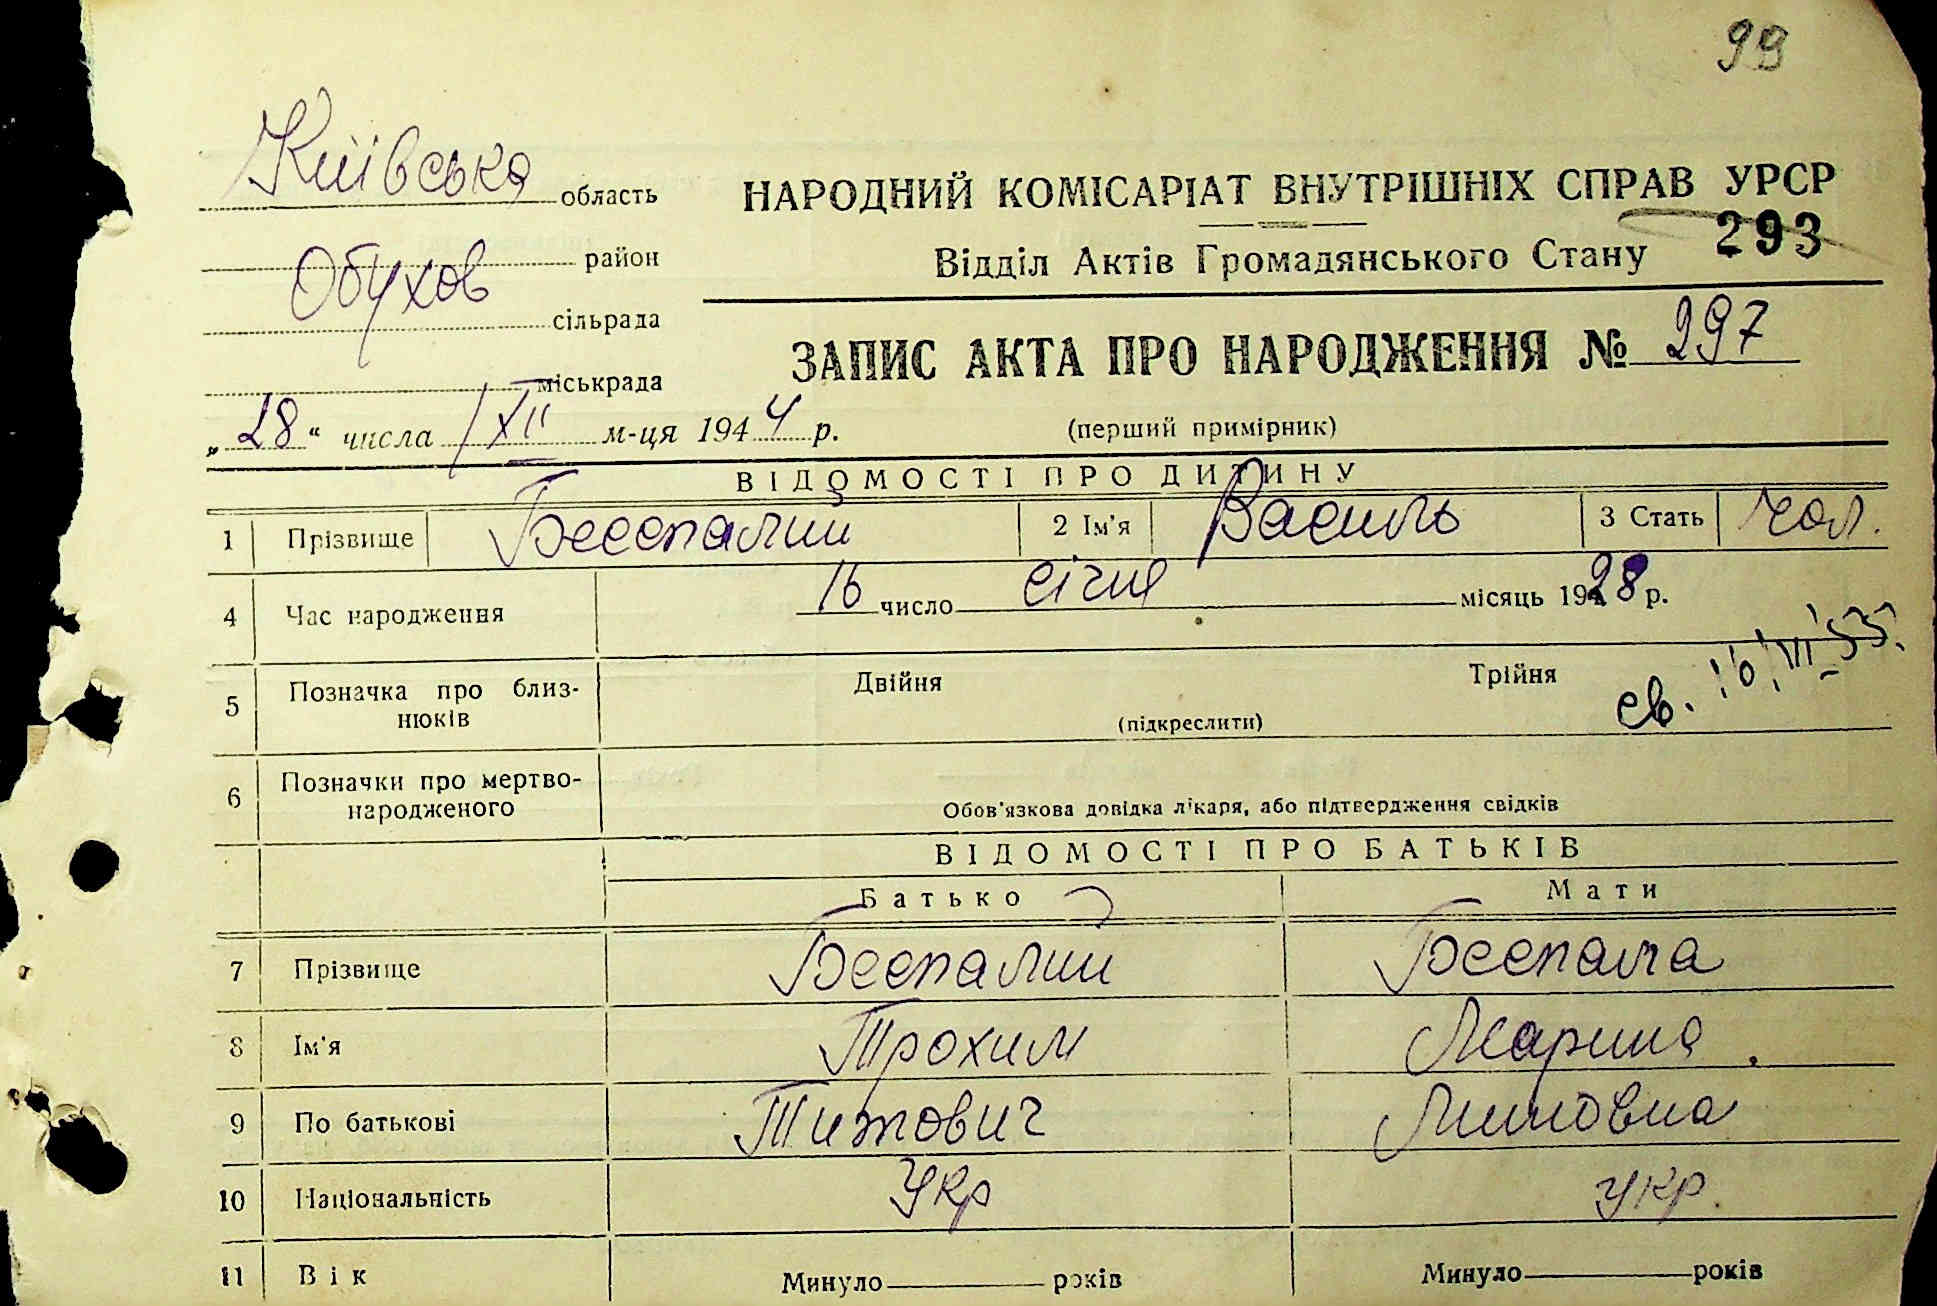 99
Київська область
НАРОДНИЙ КОМІСАРІАТ ВНУТРІШНІХ СПРАВ УРСР
293
Обухов район
Відділ Актів Громадянського Стану
сільрада
ЗАПИС АКТА ПРО НАРОДЖЕННЯ № 297
міськрада
„28“ числа XII м-ця 1944 р.
(перший примірник)
ВІДОМОСТІ ПРО ДИТИНУ
1 Прізвище Беспалий 2 Ім'я Василь 3 Стать чол.
4 Час народження 16 число січня місяць 1928 р.
5 Позначка про близ-
нюків
Двійня Трійня
(підкреслити)
св. 10 VII 55.
6 Позначки про мертво-
народженого
Обов'язкова довідка лікаря, або підтвердження свідків
ВІДОМОСТІ ПРО БАТЬКІВ
Батько Мати
7 Прізвище Беспалий Беспала
8 Ім'я Трохим Марина
9 По батькові Титович
10 Національність Укр укр.
11 Вік Минуло років Минуло років